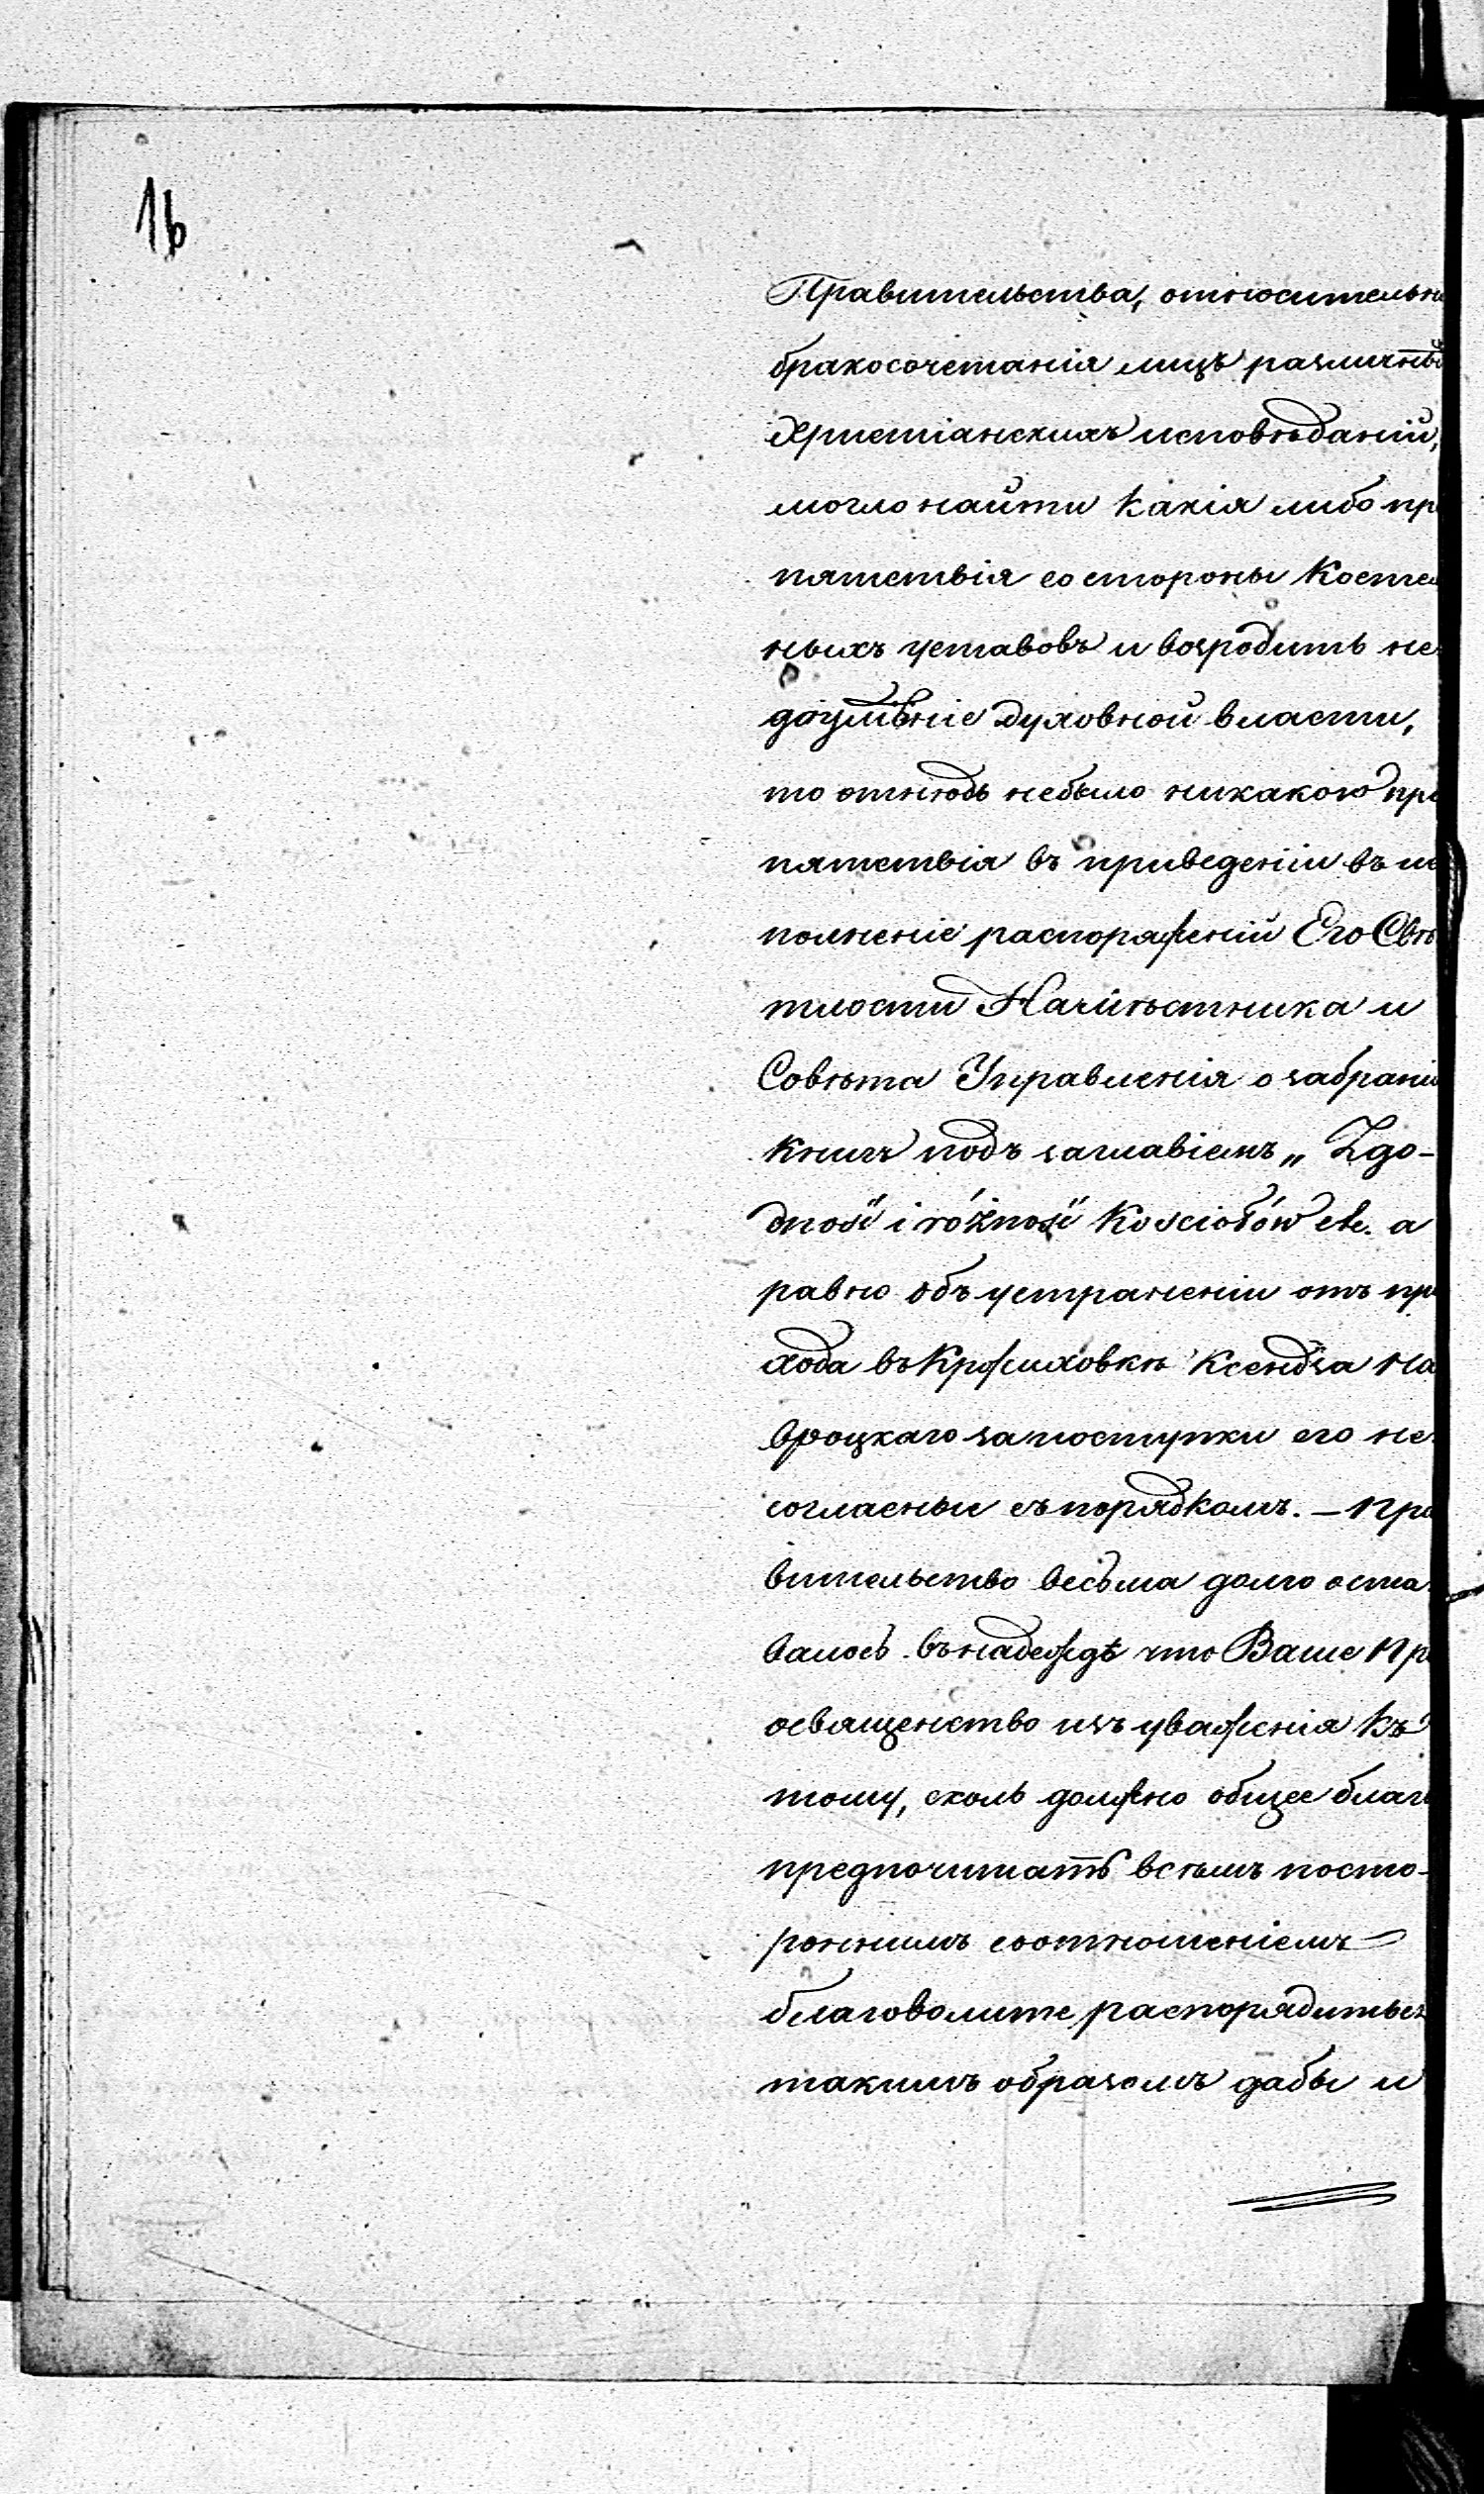 16
Правительства, относительн
бракосочетанія лицъ различны
Христіанскихъ исповѣданій,
могло найти какія либо пр
пятствія со стороны Костел
ныхъ уставовъ и возродить не-
доумѣніе духовной власти,
то отнюдь небыло никакого пре
пятствія въ приведеніи въ ис
полненіе распоряженій Его Свѣ
тлости Намѣстника и
Совѣта Управленія о забраніи
книгъ подъ заглавіемъ „Zgo-
dność i różność Kosciołów etc. а
равно объ устраненіи отъ при
хода въ Кржижовкѣ Ксендза На
вроцкаго за поступки его не-
согласные съ порядкомъ. — Пра
вительство весьма долго оста-
валось въ надеждѣ что Ваше Пр
освященство изъ уваженія къ
тому, сколь должно общее благо
предпочитать всѣмъ посто-
роннимъ соотношеніемъ
благоволите распорядиться
такимъ образомъ дабы и